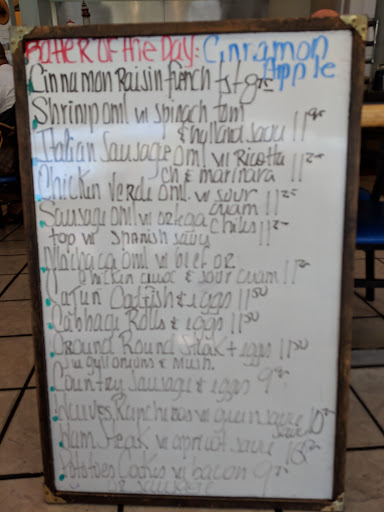 Batter of the Day: Cinnamon
Apple
Cinnamon Raisin french tst
Shrimp oml w spinach tom
& hollandsauce 11
Italian Sausage oml w Ricotta 11
ch & marinara
Chicken Verde oml w sour 11
cream
Sausage oml w ortega chilies 11
top w Spanish sauce
Machaca oml w beef or
chicken avoc & sour cream 11
Cajun Catfish & eggs 11 50
Cabbage Rolls & eggs 11 50
Ground Round Steak & eggs 11 50
w grill onions & mush.
Country Sausage & eggs 9
Huevos Rancheros w green sauce 10
Ham Steak w apricot sauce 13
Potatoes Cakes w bacon 9
or sausage